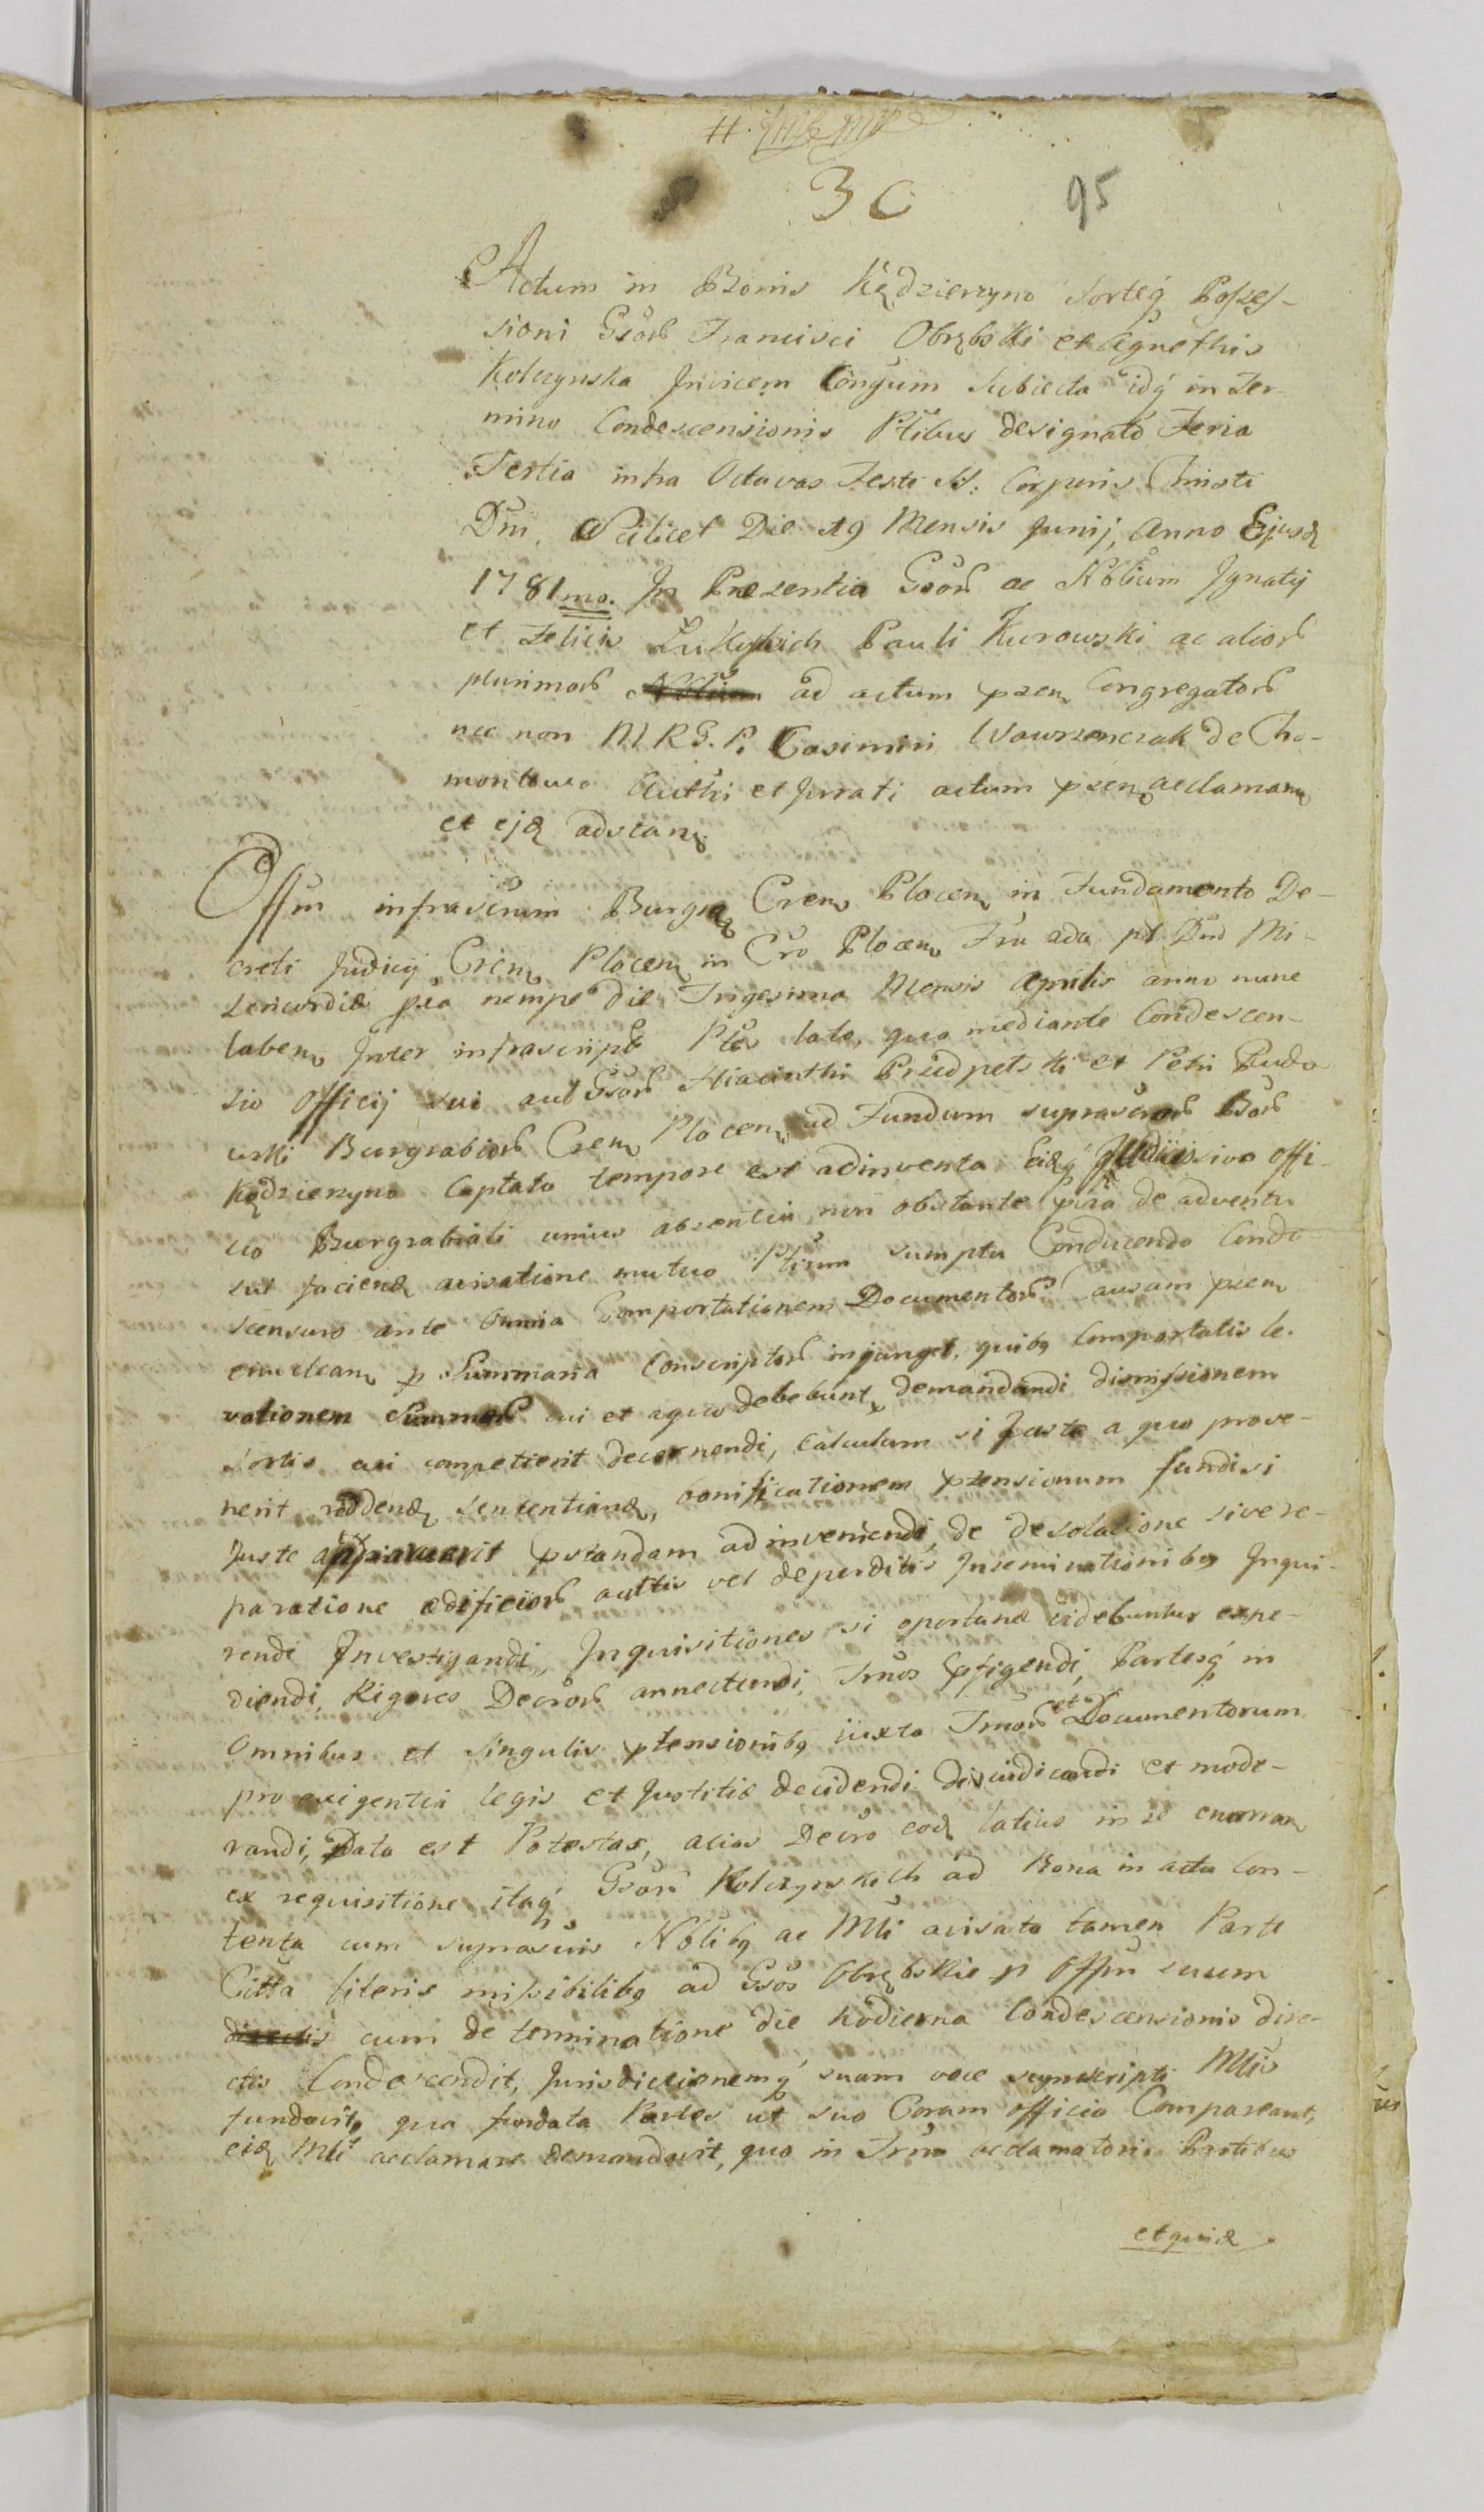 3 C 95
Actum in Bonis Kędzierzyno Sorteq́ Posses-
sioni Gsor̃ Francisci Obrębski et Agnethis
Kolczynska Invicem Conĩgum Subiecta idq́ in Ter-
mino Condescensionis Ptibus designato Feria
Tertia infra Octavas Festi SS: Corporis Christi
Dni. Scilicet Die 19 Mensis Junij, Anno Ejusd
1781mo. In Præsentia Gsor̃ ac Nobĩlium Ignatij
et Felicis Pauli Kurowski ac alior̃
plurimor̃ ad actum præn Congregator̃
nec non M R G. P. Casimiri Wawrzenczak de Cho-
montowo Authi et Jurati actum præn acclaman
et ejd adstan
Offm infrascrum Burgra Cren Plocen in Fundamento De-
creti Judicij Cren Plocen in Cro Plocen Fru ada pt Dnd Mi-
sericordiæ pxa nempe die Trigesima Mensis Aprilis anno nunc
laben Inter infrascript Ptes lato, quo mediante Condescen-
sio Officij sui aut Gsor̃ Hiacinthi Przedpelski et Petri Rudo
wski Burgrabior̃ Cren Plocen ad Fundum suprascror̃ Bor̃
Kędzierzyno Captato tempore est adinventa Eidq́ Officio sivo offi-
cio Burgrabiali unius absentia non obstante pxa de adventu
sui faciend avisatione mutuo Ptium sumptu Conducendo Conde-
scensuro ante Omnia Comportationem Documentor̃ Causam præn
enuclean p Summaria Conscriptor̃ injunget, quibq Comportatis le-
vationem Summar̃ cui et a quo debebunt, demandandi dismissionem
Sortis cui competierit decernendi, calculum si Juste a quo prove-
nerit reddend sententiand, bonificationem prænsionum fundi si
Juste pstandam adinveniendi, de desolatione sive re-
paratione ædificior̃ auctis vel deperditis Inseminationibq Inqui-
rendi Investigandi, Inquisitiones si oportunæ videbuntur expe-
diendi, Rigores Decror̃ annectendi, Trnos ꝑfigendi, Partesq́ in
Omnibus et Singulis ptensionibq iuxta Trnor̃ et Documentorum
pro exigentia legis et Justitiæ decidendi dijudicandi et mode-
randi, Data est Potestas, alias Decro eod latius in se enarran
ex requisitione itaq́ Gsor̃ Kolczynskich ad Bona in actu Con-
tenta cum suprascris Nobĩlibq ac Mli avisata tamen Parte
Citta literis missibilibq ad Gsos Obrębskie p Offm suum
cum de terminatione die hodierna Condescensionis dire-
ctis Condescendit, Jurisdictionemq́ suam voce suprascripti Mlis
fundavit, qua fundata Partes ut suo Coram officio Compareant,
eid Mli acclamare demandavit, quo in Trno acclamatorio Partibus
et quid